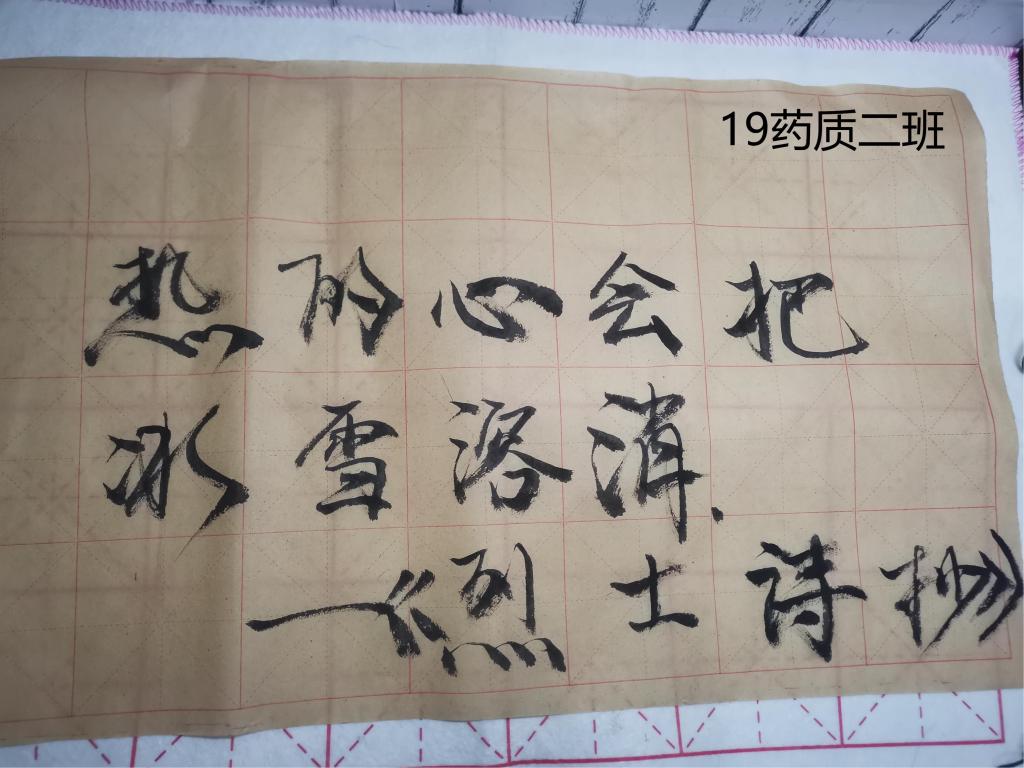 19药质二班
热的心会把
冰雪溶消.
—《烈士诗抄》